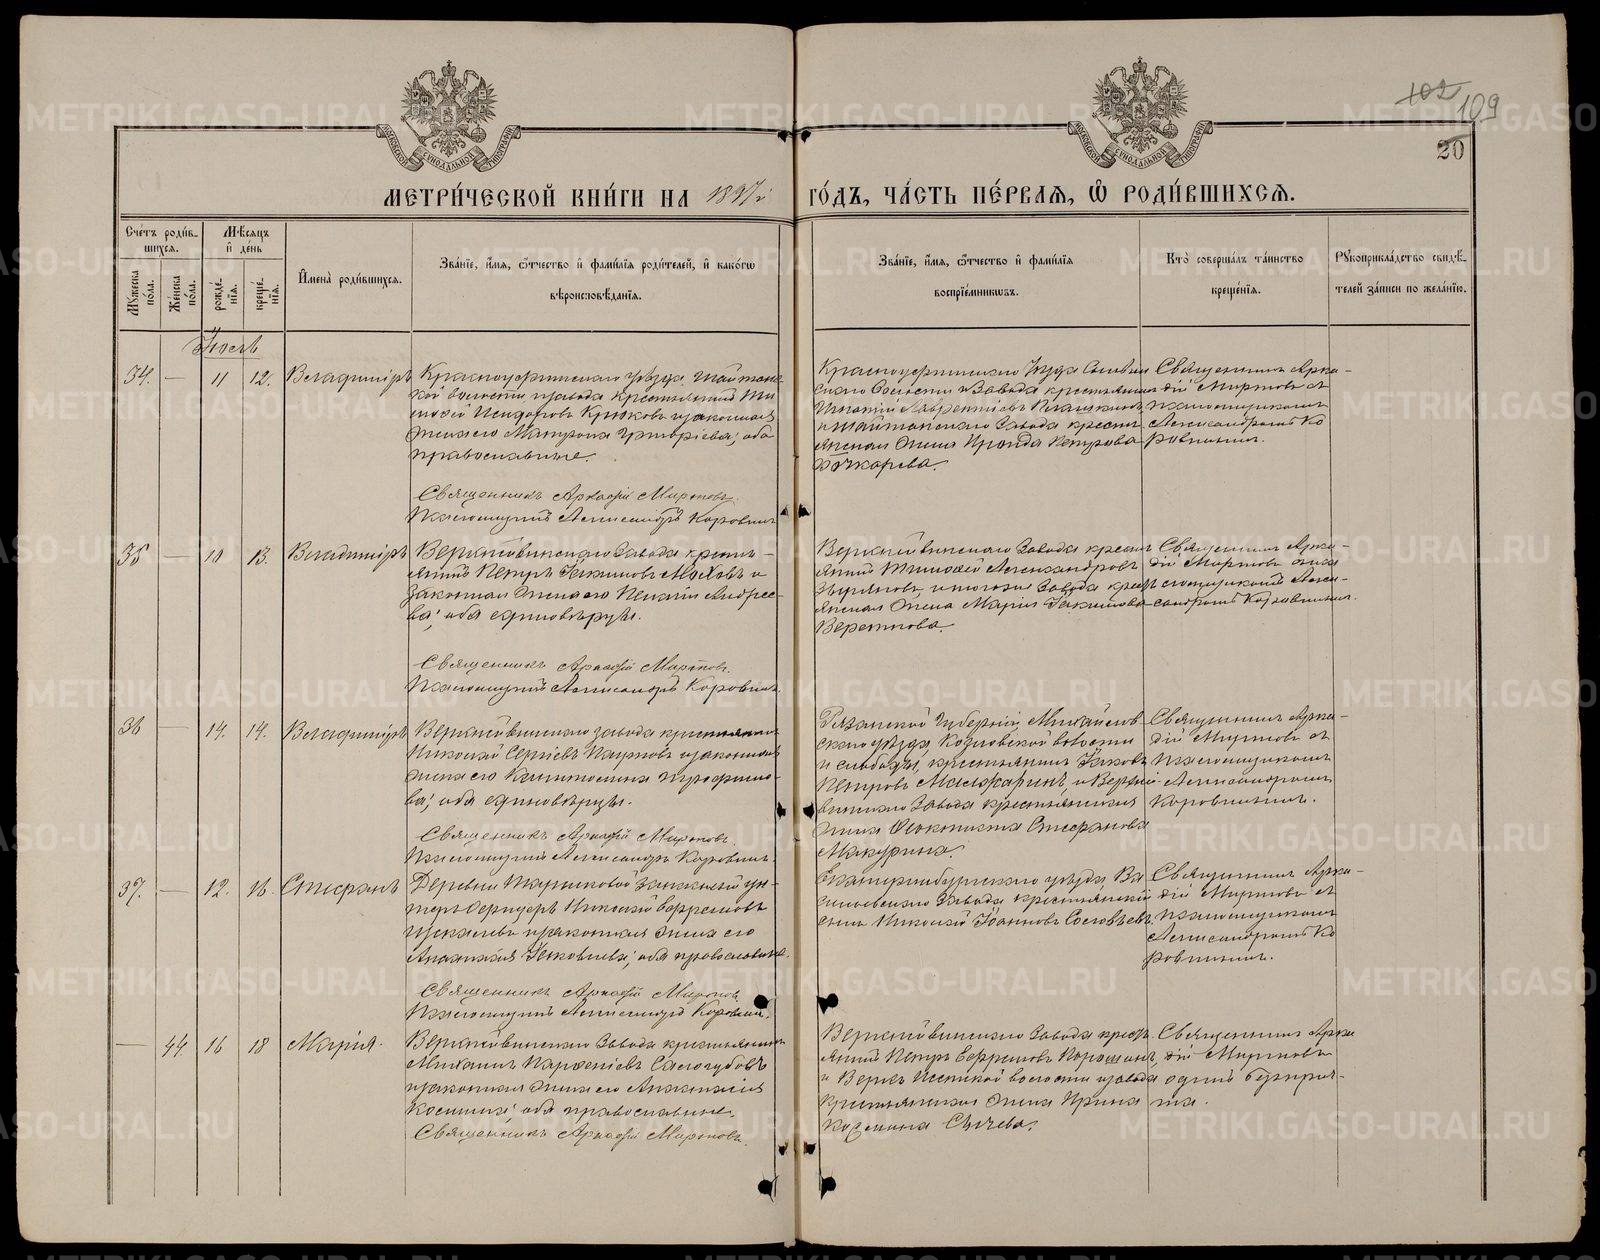 102 109
20
МОСКОВСКОЙ СѴНОДАЛЬНОЙ ТИПОГРАФІИ
МОСКОВСКОЙ СѴНОДАЛЬНОЙ ТИПОГРАФІИ
МЕТРИ́ЧЕСКОЙ КНИ́ГИ НА 1897 г. ГО́ДЪ, ЧА́СТЬ ПЕ́РВАЯ, Ѽ РОДИ́ВШИХСЯ.
Сче́тъ роди́в-
шихся.
Мѣ́сяцъ
и де́нь
Му́жеска по́ла.
Же́нска по́ла.
рожде́нїя.
креще́нїя.
И҆мена̀ роди́вшихся.
Зва́нїе, и҆́мя, ѻ҆́тчество и҆ фами́лїя роди́телей, и҆ како́гѡ
вѣроисповѣ́данїя.
Зва́нїе, и҆́мя, ѻ҆́тчество и҆ фами́лїя
воспрїе́мникѡвъ.
Кто̀ соверша́лъ та́инство
креще́нїя.
Рꙋкоприкла́дство свидѣ́-
телей за́писи по жела́нїю.
Іюль
34. — 11 12. Владиміръ
Красноуфимскаго уѣзда, Шайтан-
ской волости и завода крестьянинъ Ти-
моѳей Исидоровъ Крюковъ и законная
жена его Матрона Григоріева; оба
православные.
Священникъ Аркадій Миртовъ.
Псаломщикъ Александръ Коровинъ
Красноуфимскаго уѣзда
скаго волости и завода крестьянинъ
Игнатій Лаврентіевъ
и Шайтанскаго завода кресть
янская жена Петрова
Бочкарева.
Священникъ Арка-
дій Миртовъ съ
псаломщикомъ
Александромъ Ко
ровинымъ.
35 — 10 13. Владиміръ
Верхнейвинскаго завода кресть-
янинъ Петръ Іакимовъ Маховъ и
законная жена его Андрее-
ва; оба единовѣрцы.
Священникъ Аркадій Миртовъ.
Псаломщикъ Александръ Коровинъ.
Верхнейвинскаго завода кресть
янинъ Тимоѳей Александровъ
завода крест
янская жена Марія Іакимова
Веретнова.
Священникъ Арка-
дій Миртовъ
Алек-
сандромъ Коровинымъ.
36 — 14. 14. Владиміръ
Верхнейвинскаго завода крестьянинъ
Николай Сергіевъ и законная
жена его Трофимо-
ва; оба единовѣрцы.
Священникъ Аркадій Миртовъ.
Псаломщикъ Александръ Коровинъ.
Рязанской губерніи Михайлов
скаго уѣзда, Козловской волости
и слободы, крестьянинъ Іаковъ
Петровъ и Верхней
винскаго завода крестьянская
жена Стефанова
Макурина.
Священникъ Арка-
дій Миртовъ съ
псаломщикомъ
Александромъ
Коровинымъ.
37. — 12. 16. Стефанъ
Деревни Тарасковой запасный ун-
теръ офицеръ Николай Ефремовъ
и законная жена его
Іаковлева; оба православные.
Священникъ Аркадій Миртовъ.
Псаломщикъ Александръ Коровинъ.
Екатеринбургскаго уѣзда, Ва
сильевскаго завода крестьянскій
сынъ Николай Іоанновъ Соловьевъ.
Священникъ Арка-
дій Миртовъ съ
псаломщикомъ
Александромъ Ко
ровинымъ.
— 44 16 18 Марія.
Верхнейвинскаго завода крестьянинъ
Михаилъ Парѳеніевъ Сологубовъ
и законная жена его Анастасія
Космина; оба православные.
Священникъ Аркадій Миртовъ.
Верхнейвинскаго завода кресть
янинъ Петръ Ефремовъ
и Верхъ Исетской волости и завода
крестьянская жена Ирина
Козмина Сычева.
Священникъ Арка
дій Миртовъ
одинъ безъ прич-
та.